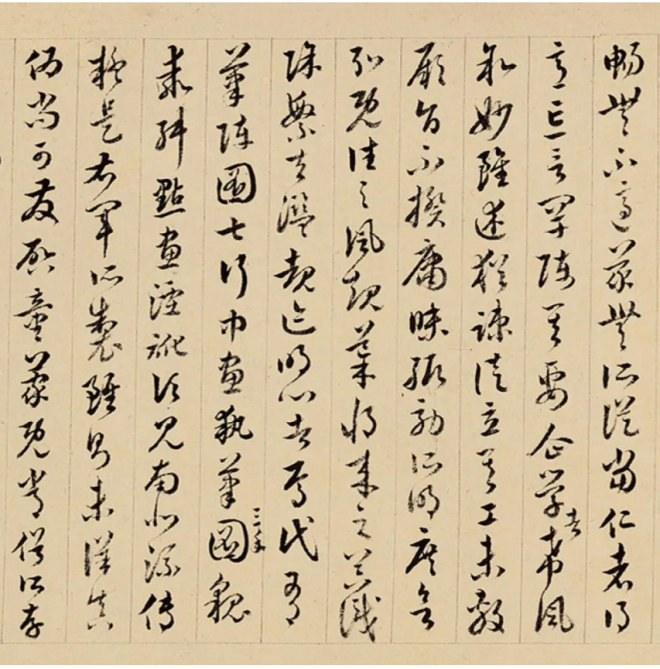 暢無不適蒙無所從當仁者得
意忘言罕陳其要企學者希風
叙妙雖述猶疎徒立其工未敷
厥旨不揆庸昧輒效所明庶欲
弘既往之風規導將來之器識
除繁去濫覩迹明心者焉代有
筆陣圖七行中畫執筆三手圖貌
乖舛點畫湮訛頃見南北流傳
疑是右軍所製雖則未詳真
偽尚可發啓童蒙既常俗所存